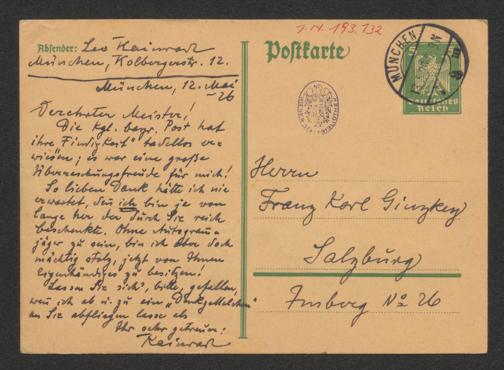 1.N.193.132
Absender: Leo Kainradl
München, Kolbergerstr. 12.
Postkarte
MÜNCHEN
Deutsches
Reich
München, 12. Mai
26
Verehrter Meister!
Die Kgl. bayr. Post hat
ihre „Findigkeit" tadellos er-
wiesen; es war eine große
Überraschungsfreude für mich!
So lieben Dank hätte ich nie
erwartet, denn ich bin ja von
lange her der durch Sie reich
beschenkte. Ohne Autogramm-
jäger zu sein, bin ich aber doch
mächtig stolz, jetzt von Ihnen
Eigenhändiges zu besitzen!
Lassen Sie sich's, bitte, gefallen,
wenn ich ab u. zu ein
an Sie abfliegen lasse als
Ihr sehr getreuer:
Kainradl
Herrn
Franz Karl Ginzkey
Salzburg
Imberg No 26